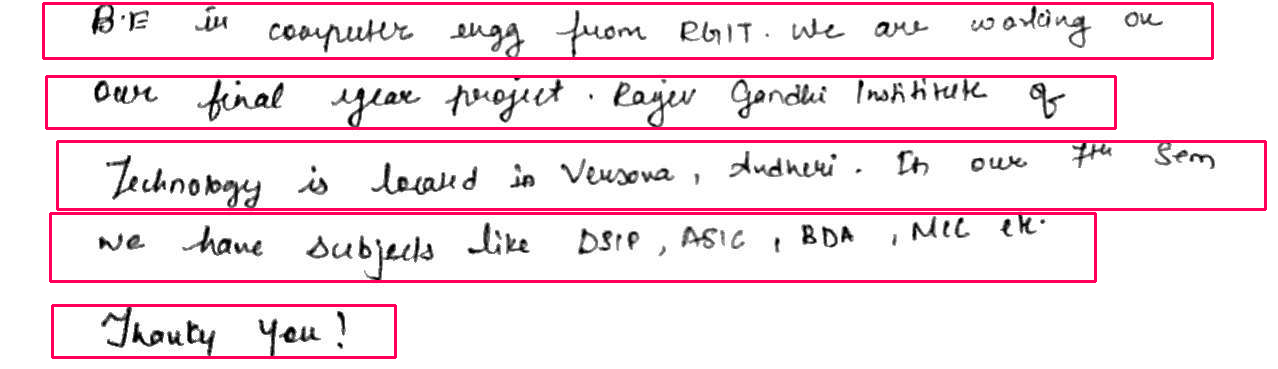 B.E in computer engg from RGIT. We are working on
our final year project. Rajiv Gandhi Institute of
Technology is located in Versova, Andheri. In our 7th Sem
we have subjects like DSIP, ASIC, BDA, MCC etc.
Thanky You!